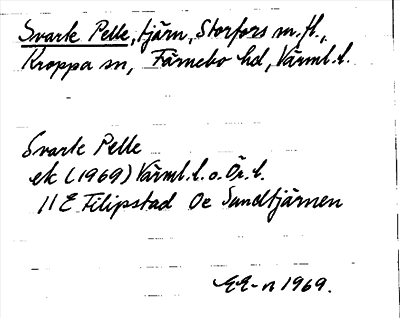 Svarte Pelle, tjärn, Storfors m.fl.,
Kroppa sn, Färnebo hd, Värml. l.
Svarte Pelle
ek (1969) Värml. l. o. Ör. l.
11 E Filipstad Oe Sandtjärnen
EE-n 1969.